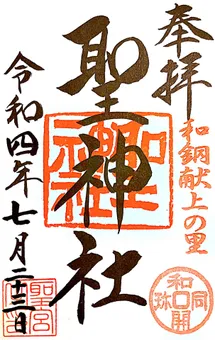 奉拝
和銅献上の里
聖神社
令和四年七月二十三日
和同開珎